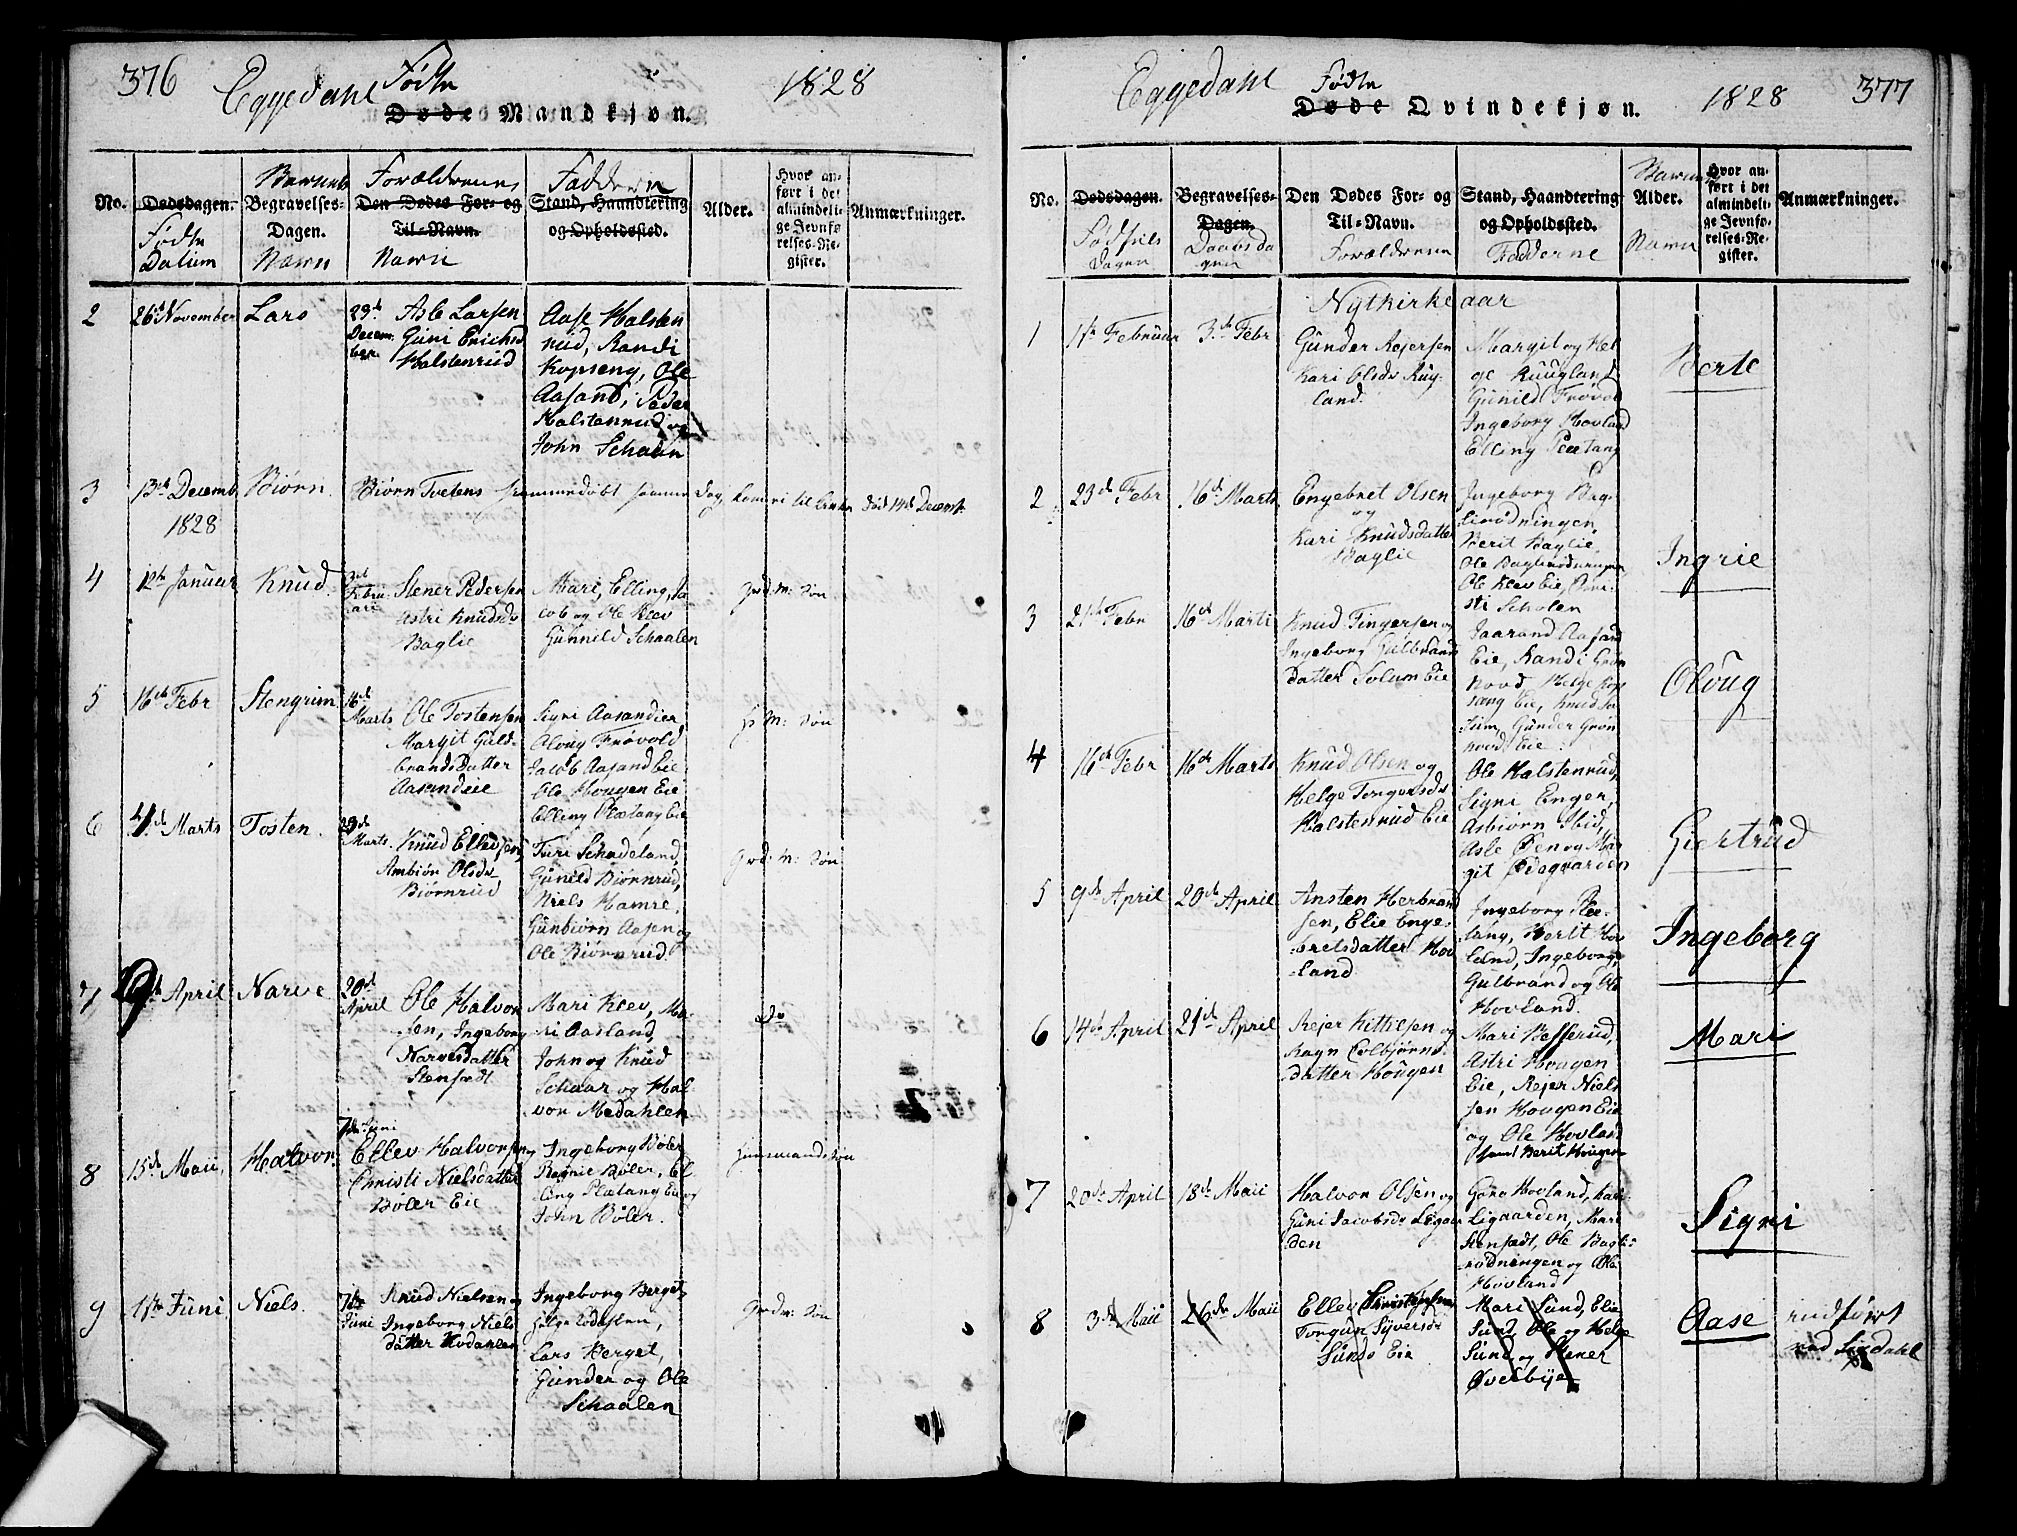 376
Eggedahl Fødte
Døde Mandkjøn.
1828
No.
Dødsdagen.
Fødte
Datum
Barnets
Begravelses-
Dagen.
Nawn
Forældrenes
Den Dødes For- og
Til-Navn.
Nawn
Faddern
Stand, Haandtering
og Opholdssted.
Alder.
Hvor an-
ført i det
almindeli-
ge Jevnfø-
relses-Re-
gister.
Anmærkninger.
2
26de November
Lars
29de
Decem-
ber
Asle Larsen
Guni Erichsd
Halstenrud
Aase Halsten
rud, Randi
Kopseng, Ole
Aasand, Peder
Halstenrud og
John Schaaln
3
13de Decemb
1828
Biørn
Biørn Tvetens hiemmedøbt samme Dag, død 14de Decemb.
4
12te Januar
Knud
Stener Pedersen
Astri Knudsdr
Baglie
Mari, Elling, Ja
cob og Ole Klev
Gunnild Schaalen
Grd: M: Søn
5
16de Febr
Stengrim
16de
Marts
Ole Tostensen
Margit Guld-
brandsDatter
Aasandeie
Signi Aasandeie,
Aloug Frøvold
Jacob Aasand Eie
Ole Hougen Eie
Elling Plætang Eie
Hs M: Søn
6
4de Marts
Tosten
Marts
Knud Ellevsen
Ambiør Olsdr
Biørnrud
Turi Schadeland,
Gunild Biørnrud,
Niels Hamre,
Gunbiørn Aasen og
Ole Biørnrud
Grd: M: Søn
7
9de April
Narve
20de
April
Ole Halvor
sen, Ingeborg
Narvesdatter
Stensædt
Mari Klev, Ma-
ri Aasland,
John og Knud
Schaar og Hal
vor Medahlen
Do
8
15de Maii,
Halvor
7de Juni
Ellev Halvorsen
Christi Nielsdatter
Bøler Eie
Ingeborg Bøler
Ragnie Bøler, El
ling Plætang Eie og
John Bøler.
Huusmandssøn
9
1ste Juni
Niels
7de
Juni
Knud Nielsen og
Ingeborg Niels
datter Kodahlen
Ingeborg Berget,
Lars Berget,
Gunder og Ole
Schaalen
Grdm: Søn
Eggedahl
Fødte
Døde Qvindekjøn.
1828
377
No.
Dødsdagen.
Fødsels
Dagen
Begravelses-
Dagen.
Daabsda
gen
Den Dødes For- og
Til-Navn.
Forældrene
Stand, Haandtering
og Opholdssted.
Fadderne
Barnets
Alder.
Nawn
Hvor an-
ført i det
almindeli-
ge Jevnfø-
relses-Re-
gister.
Anmærkninger.
Nytkirkeaar
1
1ste Februar
3de Febr
Gunder Rejersen
Kari Olsdr Rug-
land.
Margit og Hel
ge Ruugland
Gunild Frøvold
Ingeborg Hovland
Elling Plætang
Berte
2
23de Febr
16de Marts
Engebret Olsen
og
Kari Knudsdatter
Baglie
Ingeborg Bag-
lirødningen,
Berit Baglie,
Ole Baglierødningen
Ole Klev Eie, Chri-
sti Scholen
Ingrie
3
21de Febr
16de Marti
Knud Tingersen og
Ingeborg Gulbrands
datter Solum Eie
Jaarand Aasand
Eie, Randi Grøn
hovd, Helge Kop
sang Eie, Knud So
lum, Gunder Grøn
hovd Eie
Oloug
4
16de Febr
16de Marts
Knud Olsen og
Helge Torgersdr
Halstenrud Eie
Ole Halstenrud,
Signi Enger,
Asbiørn Ibid,
Asle Øen og Mar
git Ødegaarden
Giertrud
5
9de April
20de April
Ansten Herbrand
sen, Elie Enge-
bretsdatter Hov
land
Ingeborg Plæ-
tang, Berit Hov
land, Ingeborg,
Gulbrand og Ole
Hovland.
Ingeborg
6
14de April
21de April
Rejer Kittilsen og
Ragn Colbjørns
datter Hougen
Mari Besserud,
Astri Hougen
Eie, Rejer Niel
sen Hougen Eie
og Ole Hovland
samt Berit Hougen
Mari
7
20de April
18de Maii
Halvor Olsen og
Guni Jacobsdr Ligaar
den
Goro Hovland, Kari
Ligaarden, Mari
Stensædt, Ole Bagli-
rødningen og Ole
Hovland
Signi
8
3de Maii
26de Maii
Ellev Christophersen,
Torgun Syversdr
Sunds Eie
Mari Sund, Elie
Sund, Ole og Helge
Sund og Stener
Øverbye
Aase
indført
ved Sigdahl